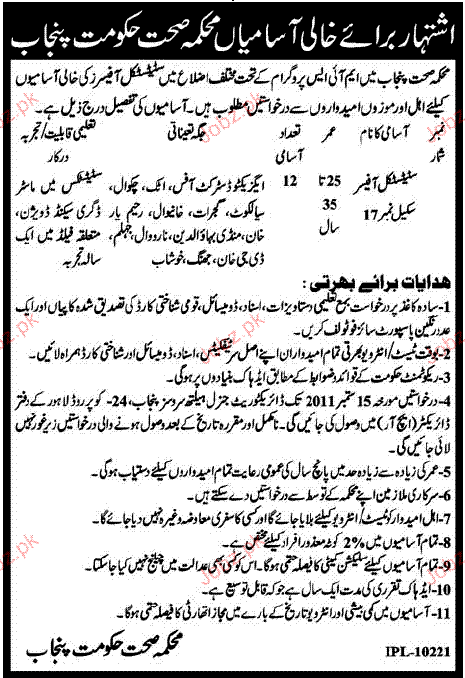 اشتہار برائے خالی آسامیاں محکمہ صحت حکومت پنجاب
محکمہ صحت پنجاب میں ایم آئی ایس پروگرام کے تحت مختلف اضلاع میں سٹیٹسٹکل آفیسرز کی خالی آسامیوں
کیلئے اہل اور موزوں امیدواروں سے درخواستیں مطلوب ہیں۔ آسامیوں کی تفصیل درج ذیل ہے۔
نمبر شمار
آسامی کا نام
عمر
تعداد آسامی
جگہ تعیناتی
تعلیمی قابلیت/تجربہ درکار
سٹیٹسٹکل آفیسر سکیل نمبر 17
25 تا 35 سال
12
ایگزیکٹو ڈسٹرکٹ آفس، اٹک، چکوال، سیالکوٹ، گجرات، خانیوال، رحیم یار خان، منڈی بہاؤالدین، نارووال، جہلم، ڈی جی خان، جھنگ، خوشاب
سٹیٹسٹکس میں ماسٹر ڈگری سیکنڈ ڈویژن، متعلقہ فیلڈ میں ایک سالہ تجربہ
ہدایات برائے بھرتی:
1- سادہ کاغذ پر درخواست بمع تعلیمی دستاویزات، اسناد، ڈومیسائل، قومی شناختی کارڈ کی تصدیق شدہ کاپیاں اور ایک
عدد رنگین پاسپورٹ سائز فوٹو لف کریں۔
2- بوقت ٹیسٹ/انٹرویو بھرتی تمام امیدواران اپنے اصل سرٹیفکیٹس، اسناد، ڈومیسائل اور شناختی کارڈ ہمراہ لائیں۔
3- ریکروٹمنٹ حکومت کے قوائد و ضوابط کے مطابق ایڈہاک بنیادوں پر ہوگی۔
4- درخواستیں مورخہ 15 ستمبر 2011 تک ڈائریکٹوریٹ جنرل ہیلتھ سروسز پنجاب، 24-کوپر روڈ لاہور کے دفتر
ڈائریکٹر (ایچ آر) میں وصول کی جائیں گی۔ نامکمل اور مقررہ تاریخ کے بعد وصول ہونے والی درخواستیں زیر غور نہیں
لائی جائیں گی۔
5- عمر کی زیادہ سے زیادہ حد میں پانچ سال کی عمومی رعایت تمام امیدواروں کیلئے دستیاب ہوگی۔
6- سرکاری ملازمین اپنے محکمہ کے توسط سے درخواستیں دے سکتے ہیں۔
7- اہل امیدوار کو ٹیسٹ/انٹرویو کیلئے بلایا جائے گا اور کسی کا سفری معاوضہ وغیرہ نہیں دیا جائے گا۔
8- تمام آسامیوں میں 2% کوٹہ معذور افراد کیلئے مختص ہے۔
9- تمام آسامیوں کیلئے سلیکشن کمیٹی کا فیصلہ حتمی ہوگا۔ اس کو کسی بھی عدالت میں چیلنج نہیں کیا جا سکتا۔
10- ایڈہاک تقرری کی مدت ایک سال ہے جو کہ قابل توسیع ہے۔
11- آسامیوں میں کمی بیشی اور انٹرویو تاریخ کے بارے میں مجاز اتھارٹی کا فیصلہ حتمی ہوگا۔
محکمہ صحت حکومت پنجاب
IPL-10221
Jobz.pk